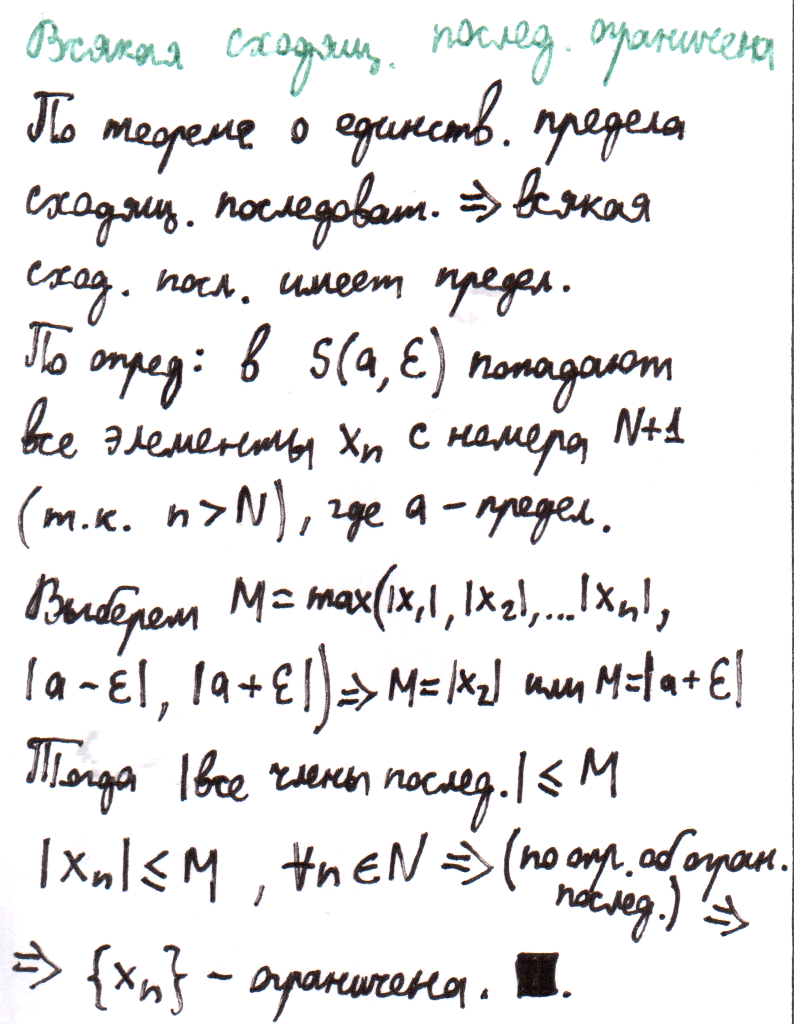 Всякая сходящ. послед. ограничена
По теореме о единств. предела
сходящ. последоват. ⇒ всякая
сход. посл. имеет предел.
По опред: в S(a, ε) попадают
все элементы xₙ с номера N+1
(т.к. n > N), где a – предел.
Выберем M = max(|x₁|, |x₂|,...|xₙ|,
|a - ε|, |a + ε|) ⇒ M = |x₂| или M = |a + ε|
Тогда |все члены послед.| ≤ M
|xₙ| ≤ M, ∀n ∈ N ⇒ (по опр. об огран.
послед.) ⇒
⇒ {xₙ} – ограничена. ■.